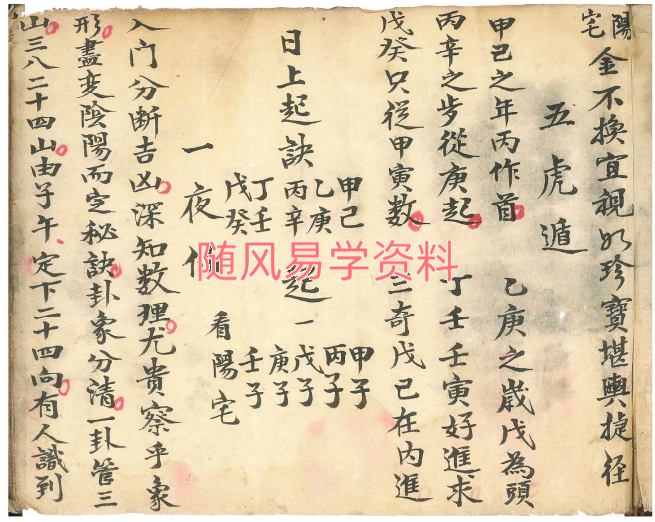 陽宅金不換宜視如珍寶堪輿捷径
五虎遁
甲己之年丙作首 乙庚之歲戊為頭
丙辛之步從庚起 丁壬壬寅好進求
戊癸只從甲寅数 三奇戊己在内進
日上起訣
甲己 甲子
乙庚 丙子
丙辛起一戊子
丁壬 庚子
戊癸 壬子
一夜 看陽宅
入门分断吉凶深知数理尤贵察乎象
形盡变陰陽而定秘訣卦象分清一卦管三
山三八二十四山由子午定下二十四向有人識到
随风易学资料